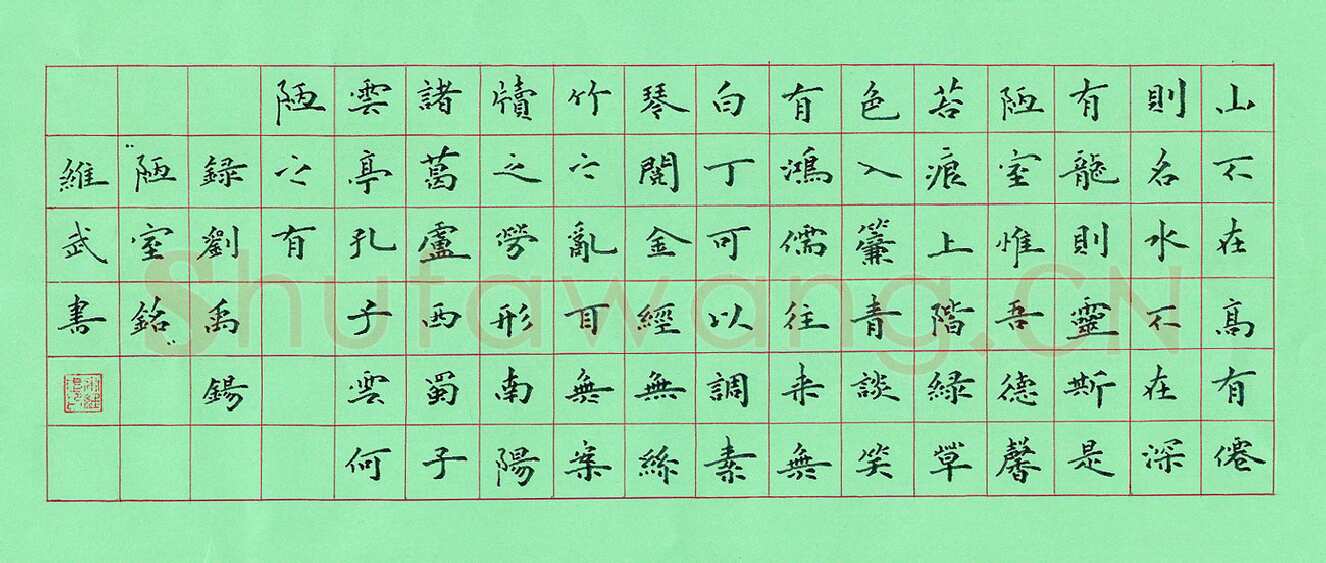 山不在高有僊
則名水不在深
有龍則靈斯是
陋室惟吾德馨
苔痕上階綠草
色入簾青談笑
有鴻儒往来無
白丁可以調素
琴閱金經無絲
竹之亂耳無案
牘之勞形南陽
諸葛盧西蜀子
雲亭孔子雲何
陋之有
録劉禹錫
"陋室銘"
維武書
Shufawang.CN